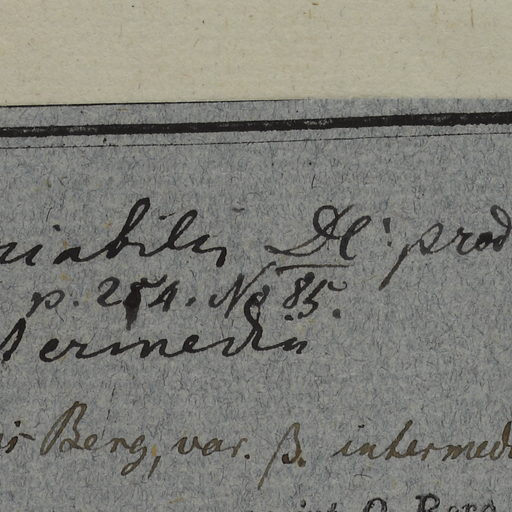 riabilis DC: prod
p. 254. No 85.
termedia
is Berg, var. β. intermedi
O. Berg